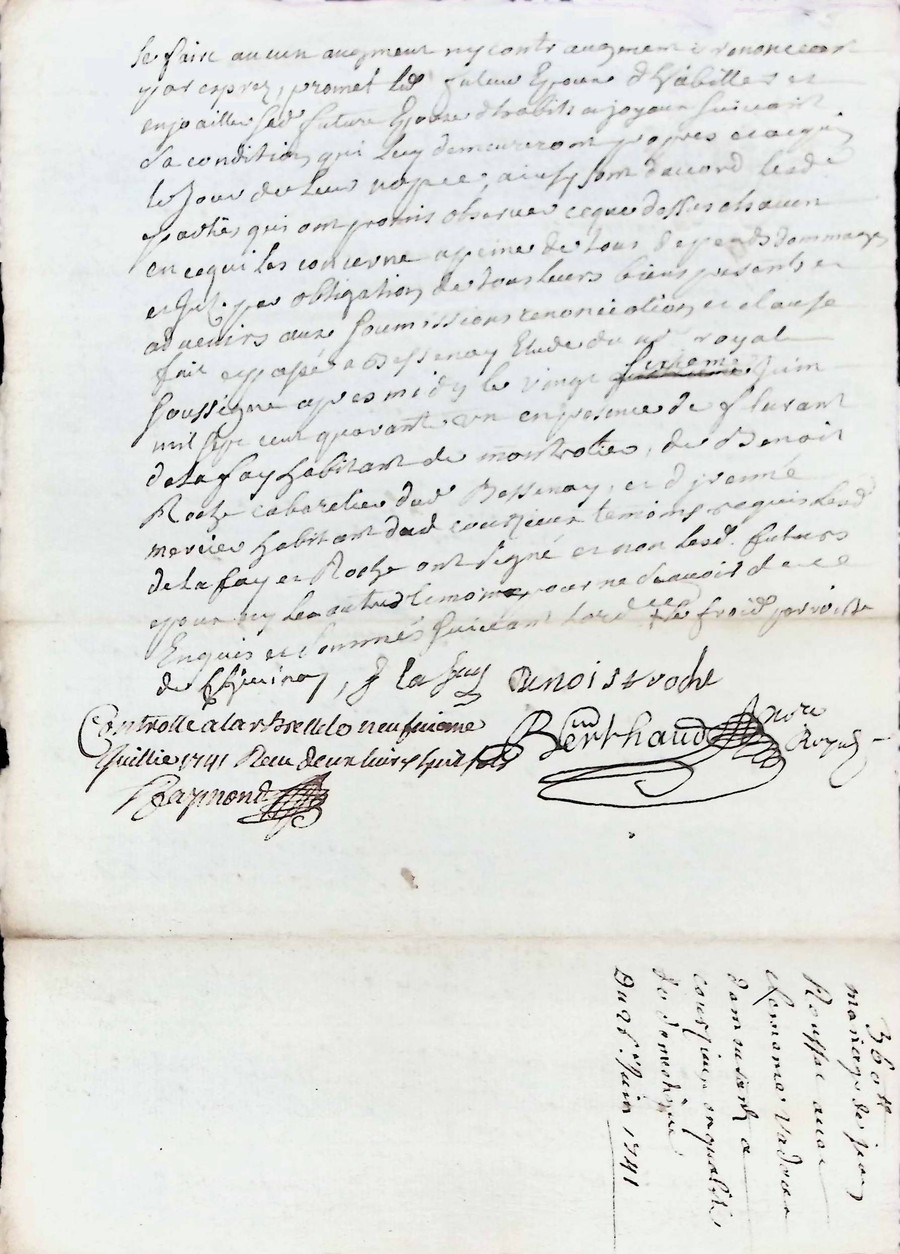 se faire aucun augment ny contr augment
par exprez, promet led futur Epoux d'habiller et
enjoailler sad future Epouse d'habits et joyaux suivant
sa condition, qui luy demeureront propres et acquis
le jour de leur nopce, ainsy sont d'accord lesd
parties qui ont promis observer ce que dessus chacun
en ce qui les concerne a peine de tous depends dommages
et int. par obligation de tous leurs biens presents et
advenirs aux soumissions renonciation et clause
fait et passé a Bessenay Etude du royal
soussigné apres midy le vingt Juin
mil sept cent quarant un en presence de flurant
de la fay habitant de montrotier, de Benoit
Roche cabaretier dud Bessenay, et
mercier habitant dud courzieux temoins requis lesd
de la fay et Roche ont signé et non lesd. futurs
epoux ny les autres temoins pour ne sçavoir de ce
Enquis et sommés suivant l'ord
de J la fay Benoist roche
Controllé a larbresle le neufuieme
Juillie 1741 Receu deux livres huit sols
Berthaud no.re Royal
Raymond
mariage de jean
Roussel avec
demeurant a
courzieux en qualité
de domestique
Du 2 Juin 1741